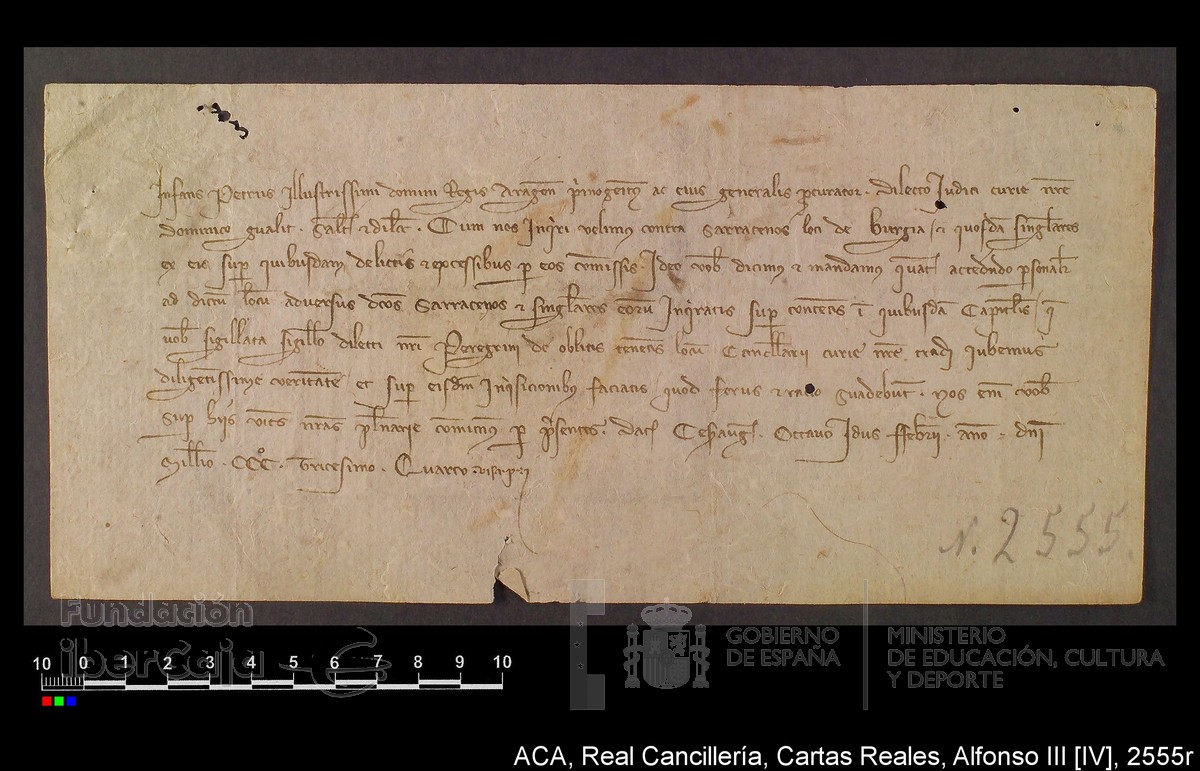 Infans Petrus Illustrissimi domini Regis Aragon p̃mogenitꝰ ac eius generalis ꝓcurator. Dilecto Iudici curie nr̃e
dominico gualit. Salt̃ ⁊ dilcẽ. Cum nos Inq̃ri velimus contra Sarracenos loci de Burgia, ⁊ quosdã singl̃ares
ex eis sup̱ quibusdam delictis ⁊ excessibus ꝑ eos cõmissis. Ideo vob̃ dicimus ⁊ mandamus quat̃ accedendo ꝑsonalr̃
ad dictũ locũ adversus dc̃os Sarracenos ⁊ singl̃ares eorũ Inq̃ratis sup̱ contentis ĩ quibusdã Capitl̃is, q̃
vob̃ sigillata sigillo dilecti nr̃i Peregrini de oblitis tenẽtis locũ Cancellarii curie nr̃e tradi iubemus
diligẽtissime veritatẽ, et sup̱ eisdm̃ Inq̃sicionibꝰ faciatis quod forus ⁊ racio suadebũt. Nos em̃ vob̃
Sup̱ hiis vices nr̃as pl̃narie comittimꝰ ꝑ p̃sentes. Dat̃ Cesaraug̃. Octavo Idus ffebr̃ii. anno dñi
Millio. CCCº. Tricesimo. Quarto
N. 2555
Fundación
ibercaja
GOBIERNO
DE ESPAÑA
MINISTERIO
DE EDUCACIÓN, CULTURA
Y DEPORTE
10 0 1 2 3 4 5 6 7 8 9 10
ACA, Real Cancillería, Cartas Reales, Alfonso III [IV], 2555r